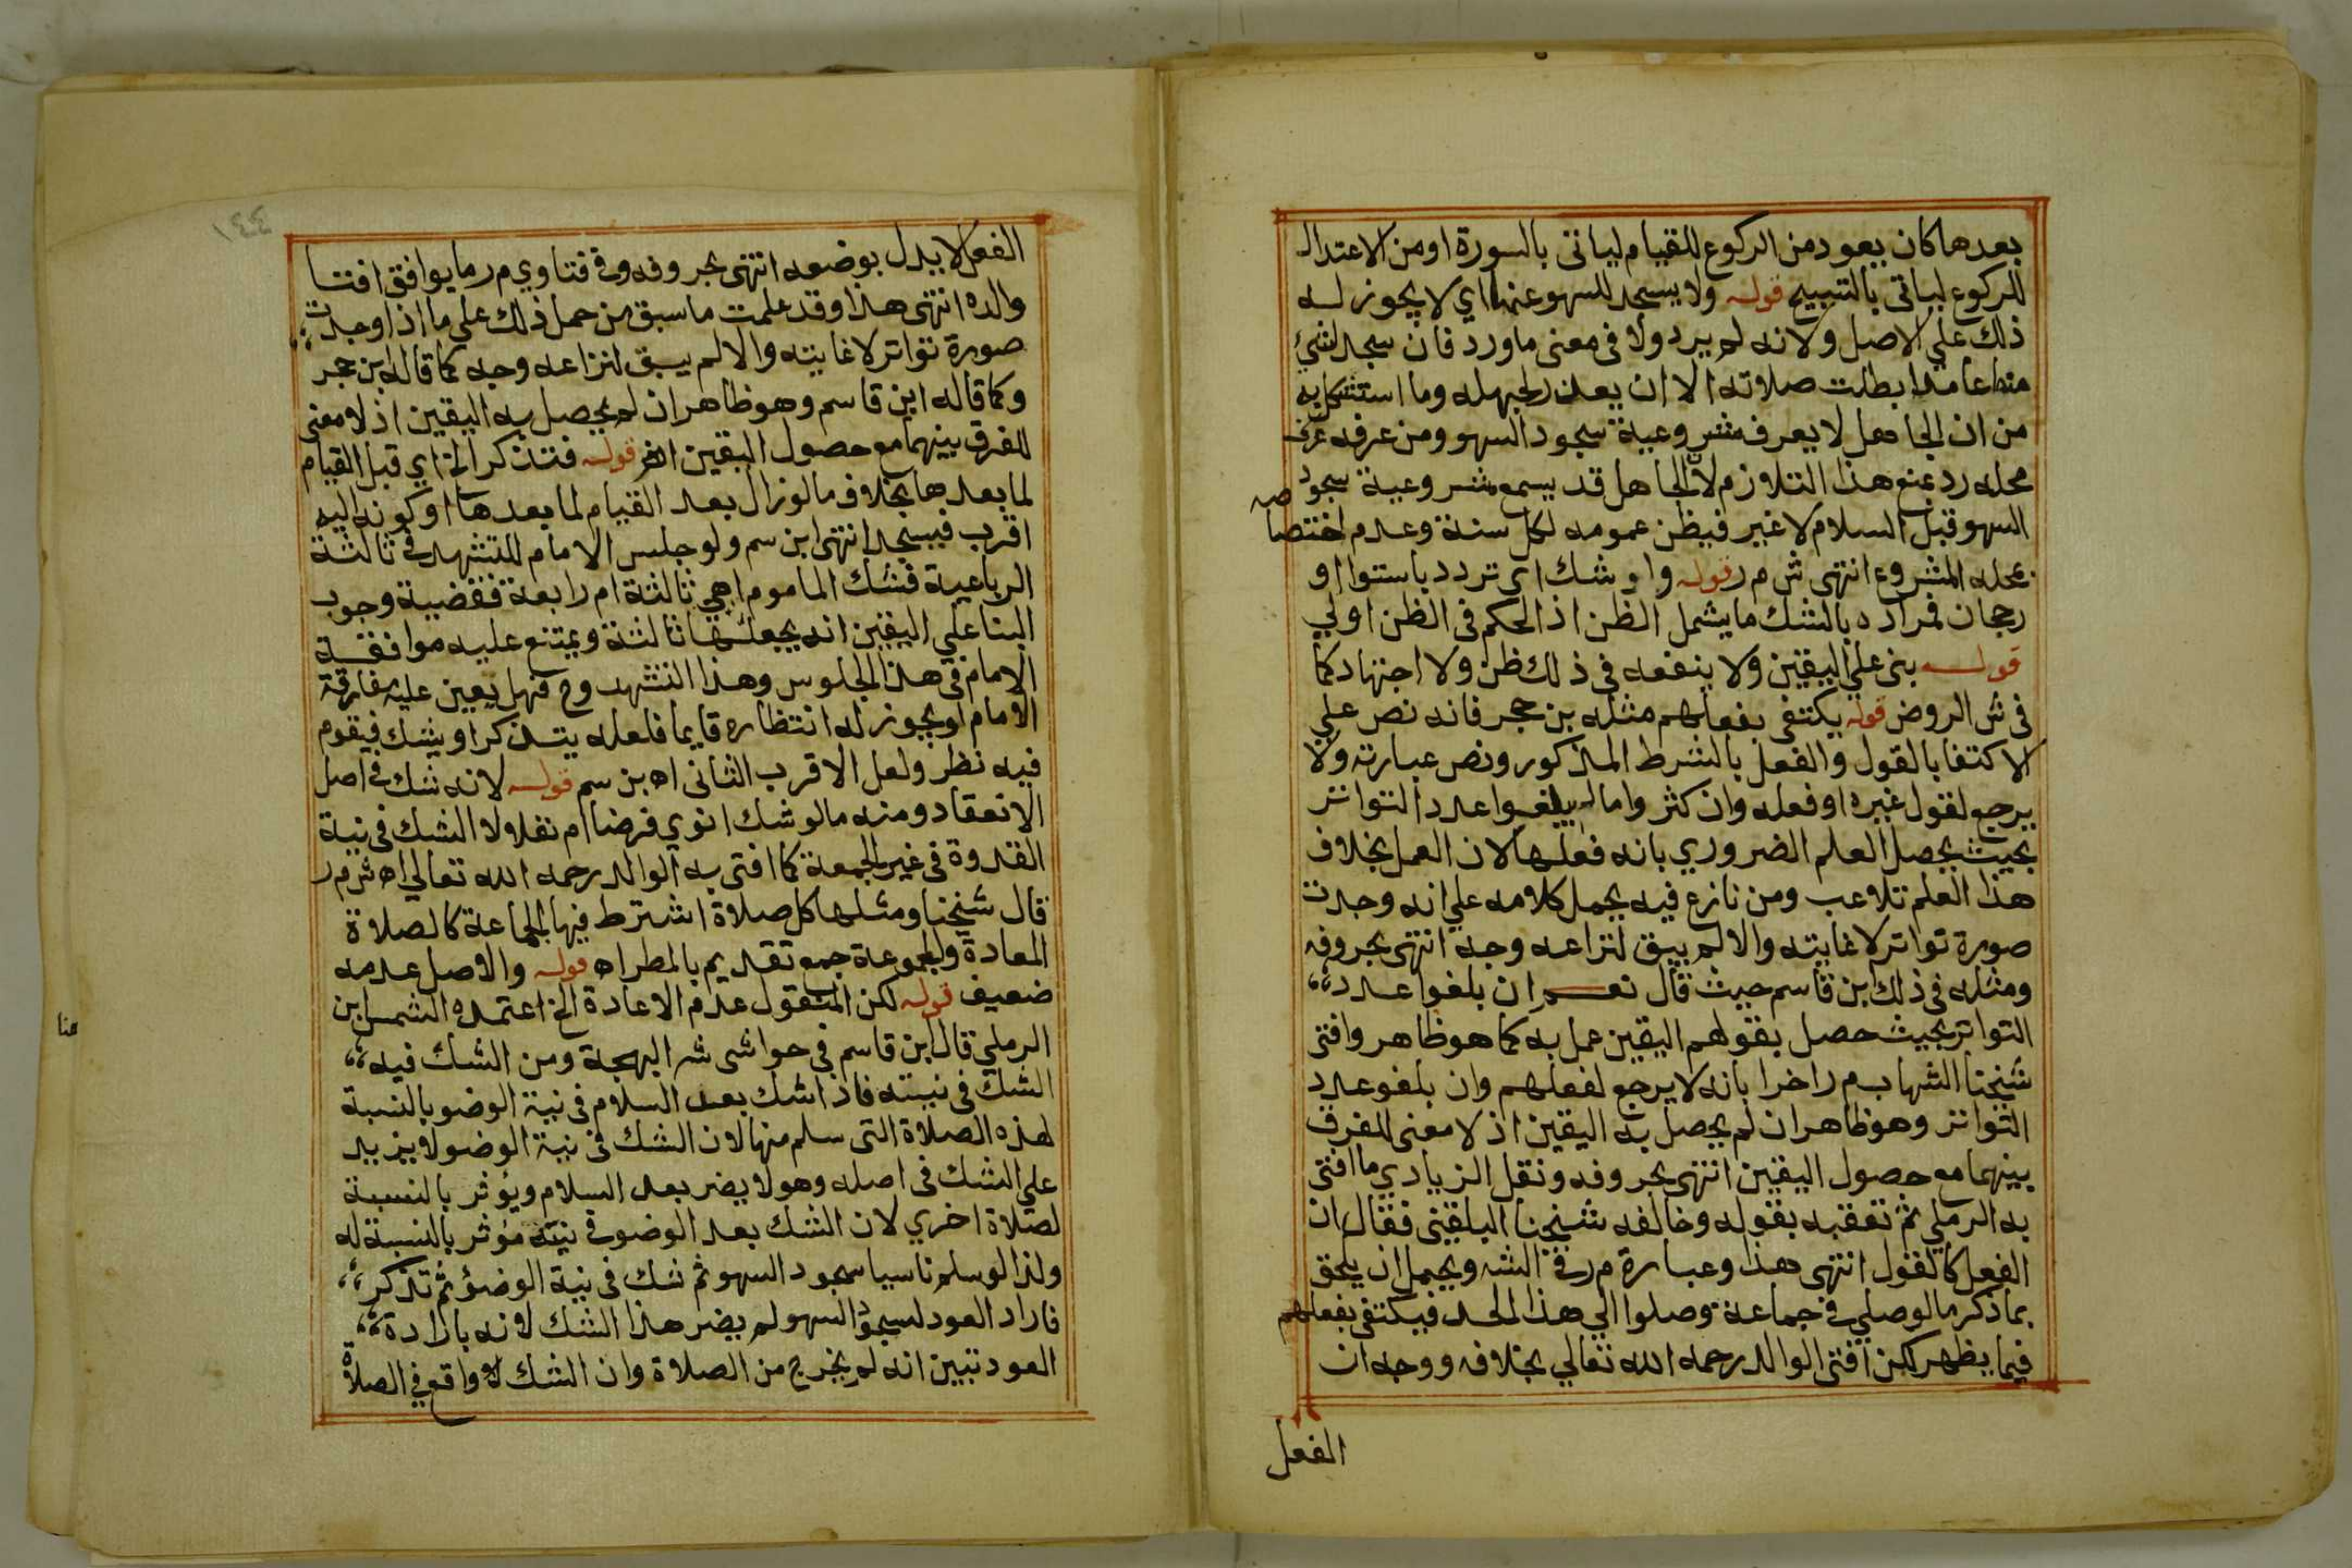 بعدها كان يعود من الركوع للقيام لياتى بالسورة او من الاعتدال
للركوع لياتى بالتسبيح قوله ولا يسجد للسهو عنها اي لا يجوز له
ذلك علي الاصل ولانه لم يرد ولا فى معنى ما ورد فان سجد لشئ
منها عامدا بطلت صلاته الا ان يعذر لجهله وما استشكل به
من ان الجاهل لا يعرف مشروعية سجود السهو ومن عرفه عرف
محله رد بمنع هذا التلازم لان الجاهل قد يسمع مشروعية سجود
السهو قبل السلام لا غير فيظن عمومه لكل سنة وعدم اختصاصه
بمحله المشروع انتهى ش م ر قوله واو شك اى تردد باستوا او
رجحان فمراده بالشك ما يشمل الظن اذ الحكم فى الظن اولي
قوله بنى علي اليقين ولا ينفعه فى ذلك ظن ولا اجتهاد كما
فى ش الروض قوله يكتفى بفعلهم مثله بن حجر فانه نص علي
الاكتفا بالقول والفعل بالشرط المذكور ونص عبارته ولا
يرجع لقول غيره او فعله وان كثر واما لم يبلغوا عدد التواتر
بحيث يحصل العلم الضروري بانه فعلها لان العمل بخلاف
هذا العلم تلاعب ومن نازع فيه يحمل كلامه علي انه وجدت
صورة تواتر لا غايته والا لم يبق لنزاعه وجه انتهى بحروفه
ومثله فى ذلك ابن قاسم حيث قال نعم ان بلغوا عدد
التواتر بحيث حصل بقولهم اليقين عمل به كما هو ظاهر وافتى
شيخنا الشهاب م ر اخرا بانه لا يرجع لفعلهم وان بلغو عدد
التواتر وهو ظاهر ان لم يحصل به اليقين اذ لا معنى للفرق
بينهما مع حصول اليقين انتهى بحروفه ونقل الزيادي ما افتى
به الرملي ثم تعقبه بقوله وخالفه شيخنا البلقينى فقال ان
الفعل كالقول انتهى هذا وعبارة م ر فى الشه ويحتمل ان يلحق
بما ذكر ما لو صلي فى جماعة وصلوا الي هذا الحد فيكتفى بفعلهم
فيما يظهر لكن افتى الوالد رحمه الله تعالي بخلافه ووجه ان
الفعل
الفعل لا يدل بوضعه انتهى بحروفه وفى فتاوي م ر ما يوافق افتا
والده انتهى هذا وقد علمت ما سبق من حمل ذلك علي ما اذا وجدت
صورة تواتر لا غايته والا لم يبق لنزاعه وجه كما قاله ابن حجر
وكما قاله ابن قاسم وهو ظاهر ان لم يحصل به اليقين اذ لا معنى
للفرق بينهما مع حصول اليقين اهر قوله فتذكر الخ اي قبل القيام
لما بعدها بخلاف ما لو زال بعد القيام لما بعدها او كونه اليه
اقرب فيسجد انتهى ابن سم ولو جلس الامام للتشهد فى ثالثة
الرباعية فشك الماموم اهي ثالثة ام رابعة فقضية وجوب
البنا علي اليقين انه يجعلها ثالثة ويمتنع عليه موافقة
الامام فى هذا الجلوس وهذا التشهد وح فهل يتعين عليه مفارقة
الامام او يجوز له انتظاره قايما فلعله يتذكر او يشك فيقوم
فيه نظر ولعل الاقرب الثانى اه بن سم قوله لانه شك فى اصل
الانعقاد ومنه ما لو شك انوي فرضا ام نفلا لا الشك فى نية
القدوة فى غير الجمعة كما افتى به الوالد رحمه الله تعالي اه ش م ر
قال شيخنا ومثلها كل صلاة اشترط فيها الجماعة كالصلاة
المعادة والمجموعة جمع تقديم بالمطر اه قوله والاصل عدمه
ضعيف قوله لكن المنقول عدم الاعادة الخ اعتمده الشمس ابن
الرملي قال ابن قاسم فى حواشى شه البهجة ومن الشك فيه
الشك فى نيته فاذا شك بعد السلام فى نية الوضو بالنسبة
لهذه الصلاة التى سلم منها لان الشك فى نية الوضو لا يزيد
علي الشك فى اصله وهو لا يضر بعد السلام ويؤثر بالنسبة
لصلاة اخري لان الشك بعد الوضو فى نيته مؤثر بالنسبة له
ولذا لو سلم ناسيا سجود السهو ثم شك فى نية الوضؤ ثم تذكر
فاراد العود لسجود السهو لم يضر هذا الشك لانه بارادة
العود تبين انه لم يخرج من الصلاة وان الشك لا واقع فى الصلاة
هنا
١٤٤